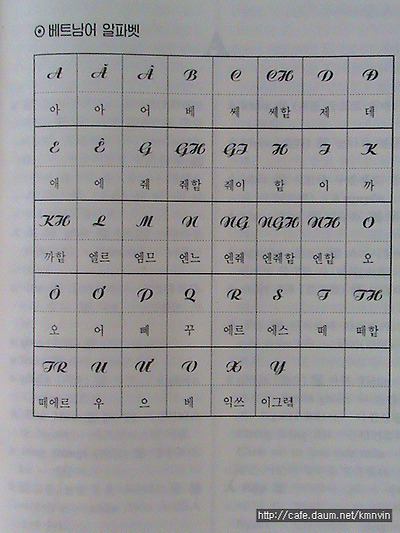 ⊙ 베트남어 알파벳
A Ă Â B C CH D Đ
아 아 어 베 쎄 쎄핱 제 데
E Ê G GH GI H I K
애 에 줴 줴핱 줴이 핱 이 까
KH L M N NG NGH NH O
까핱 엘르 엠므 엔느 엔줴 엔줴핱 엔핱 오
Ô Ơ P Q R S T TH
오 어 뻬 꾸 에르 에스 떼 떼핱
TR U Ư V X Y
떼에르 우 으 베 익쓰 이그렡
http://cafe.daum.net/kmnvin